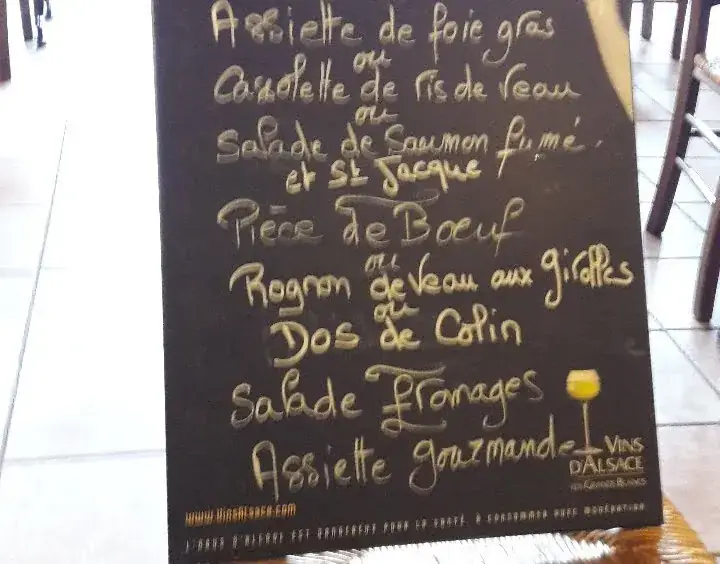 Assiette de foie gras
ou
Cassolette de ris de veau
ou
Salade de Saumon fumé.
et St Jacque
Pièce de Boeuf
ou
Rognon de veau aux girolles
ou
Dos de Colin
Salade Fromages
Assiette gourmande
VINS
D'ALSACE
LES GRANDS BLANCS
www.VinsAlsace.com
L'ABUS D'ALCOOL EST DANGEREUX POUR LA SANTÉ. À CONSOMMER AVEC MODÉRATION